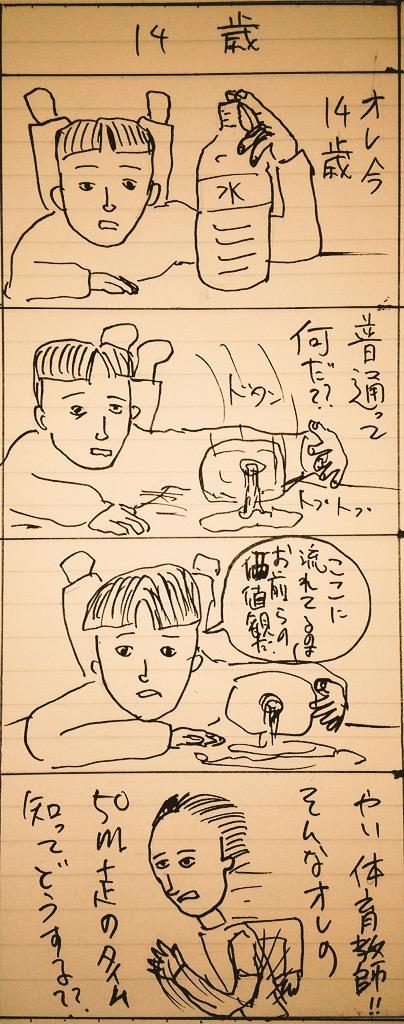 14歳
オレ今
14歳
水
普通って
何だ??
ドタン
トプトプ
ここに
流れてるのは
お前らの
価値観だ
やい体育教師!!
そんなオレの
50m走のタイム
知ってどうする??